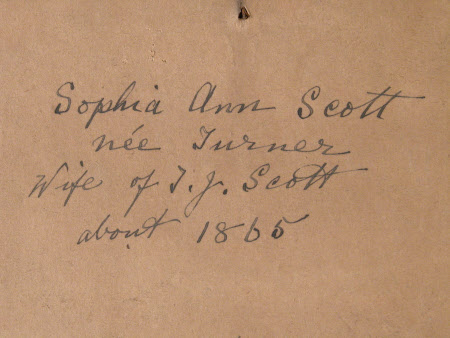 Sophia Ann Scott
née Turner
Wife of T. J. Scott
about 1865